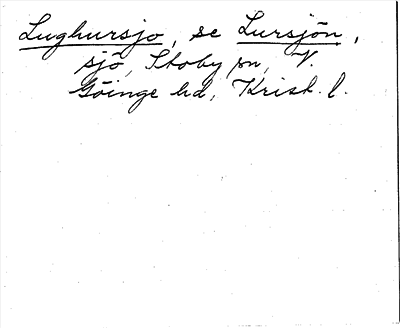 Lughursjo, se Lursjön,
sjö, Stoby sn, V.
Göinge hd, Krist. l.